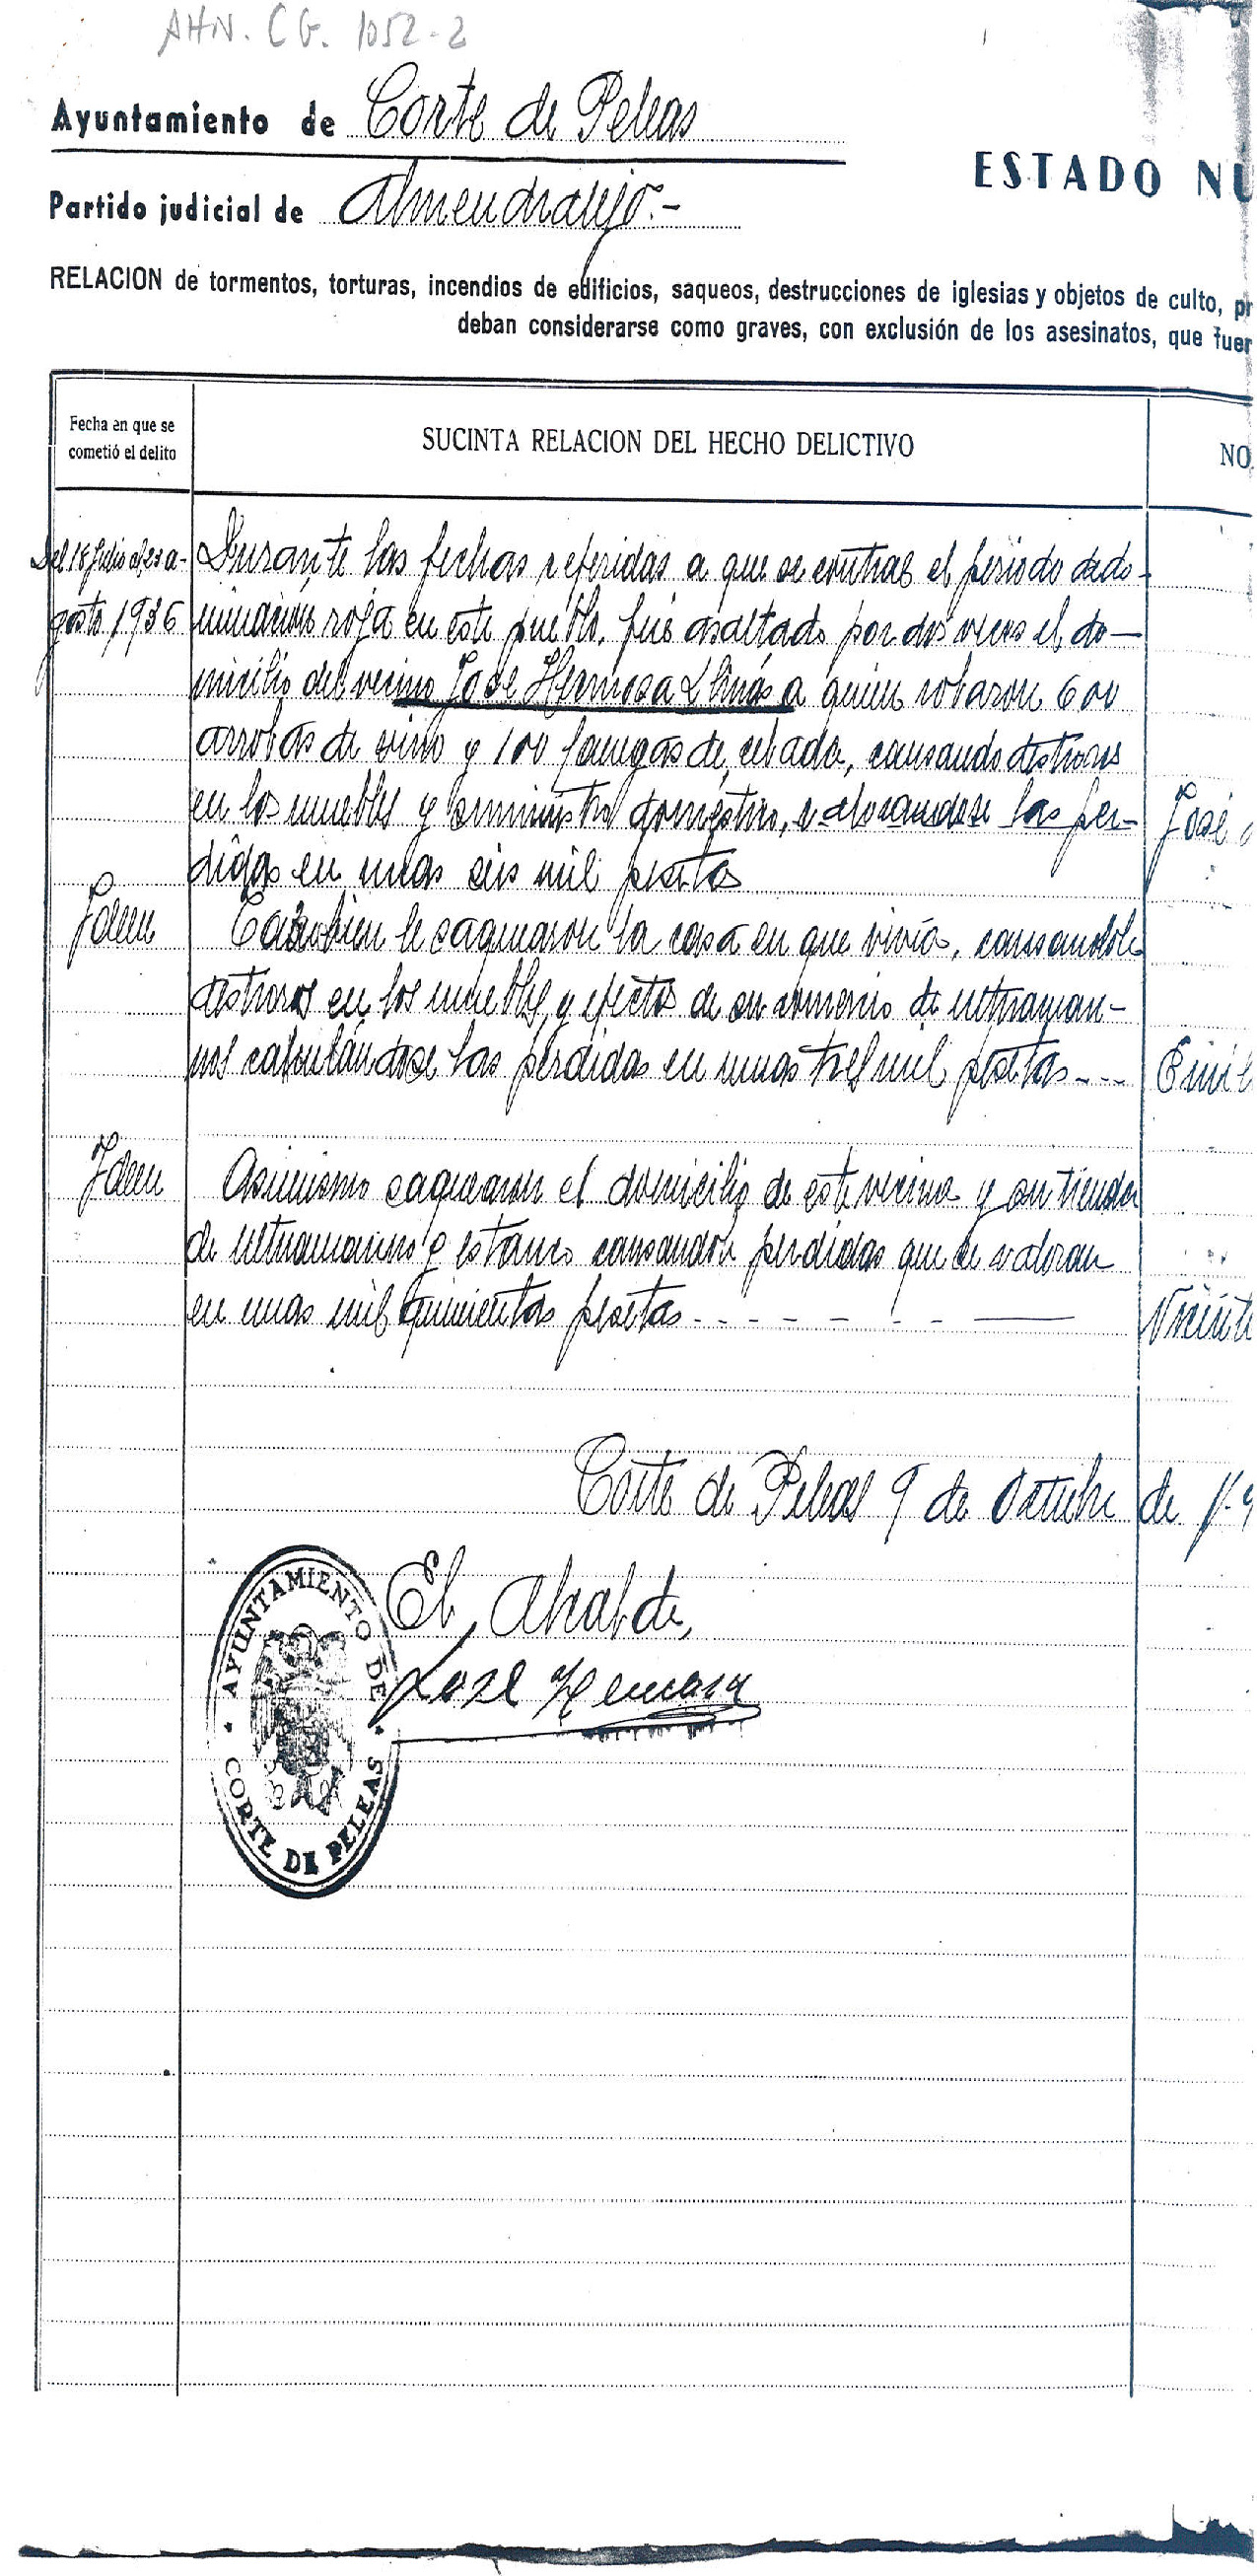 AHN. CG. 1052-2
Ayuntamiento de Corte de Peleas
ESTADO NU
Partido judicial de Almendralejo.-
RELACION de tormentos, torturas, incendios de edificios, saqueos, destrucciones de iglesias y objetos de culto, pr
deban considerarse como graves, con exclusión de los asesinatos, que fuer
Fecha en que se
cometió el delito
SUCINTA RELACION DEL HECHO DELICTIVO
NO
Del 18 Julio al 23 a-
gosto 1936
Durante las fechas referidas a que se contrae el período de do-
minación roja en este pueblo, fué asaltado por dos veces el do-
micilio del vecino José Hermosa a quien robaron 600
arrobas de vino y 100 fanegas de cebada, causando destrozos
en los muebles y doméstico, valorandose las per-
didas en unas seis mil pesetas
José
Idem
Tambien le saquearon la casa en que vivia, causandole
destrozos en los muebles, y efectos de su comercio de ultramari-
nos calculándose las perdidas en unas tres mil pesetas---
Emil
Idem
Asimismo saquearon el domicilio de este vecino y su tienda
de ultramarinos y estanco causandole perdidas que se valoran
en unas mil quinientas pesetas
Vicente
Corte de Peleas 9 de Octubre de 19
El Alcalde,
José Hermosa
AYUNTAMIENTO DE
CORTE DE PELEAS